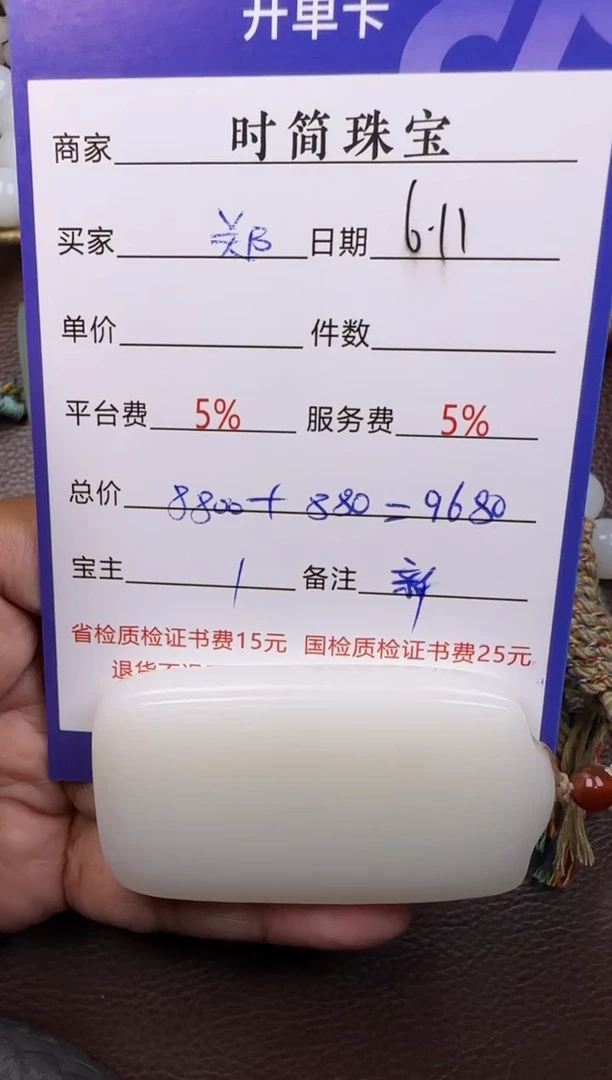 开单卡
商家 时简珠宝
买家 日期 6.11
单价 件数
平台费 5% 服务费 5%
总价 8800+880=9680
宝主 1 备注 新
省检质检证书费15元 国检质检证书费25元